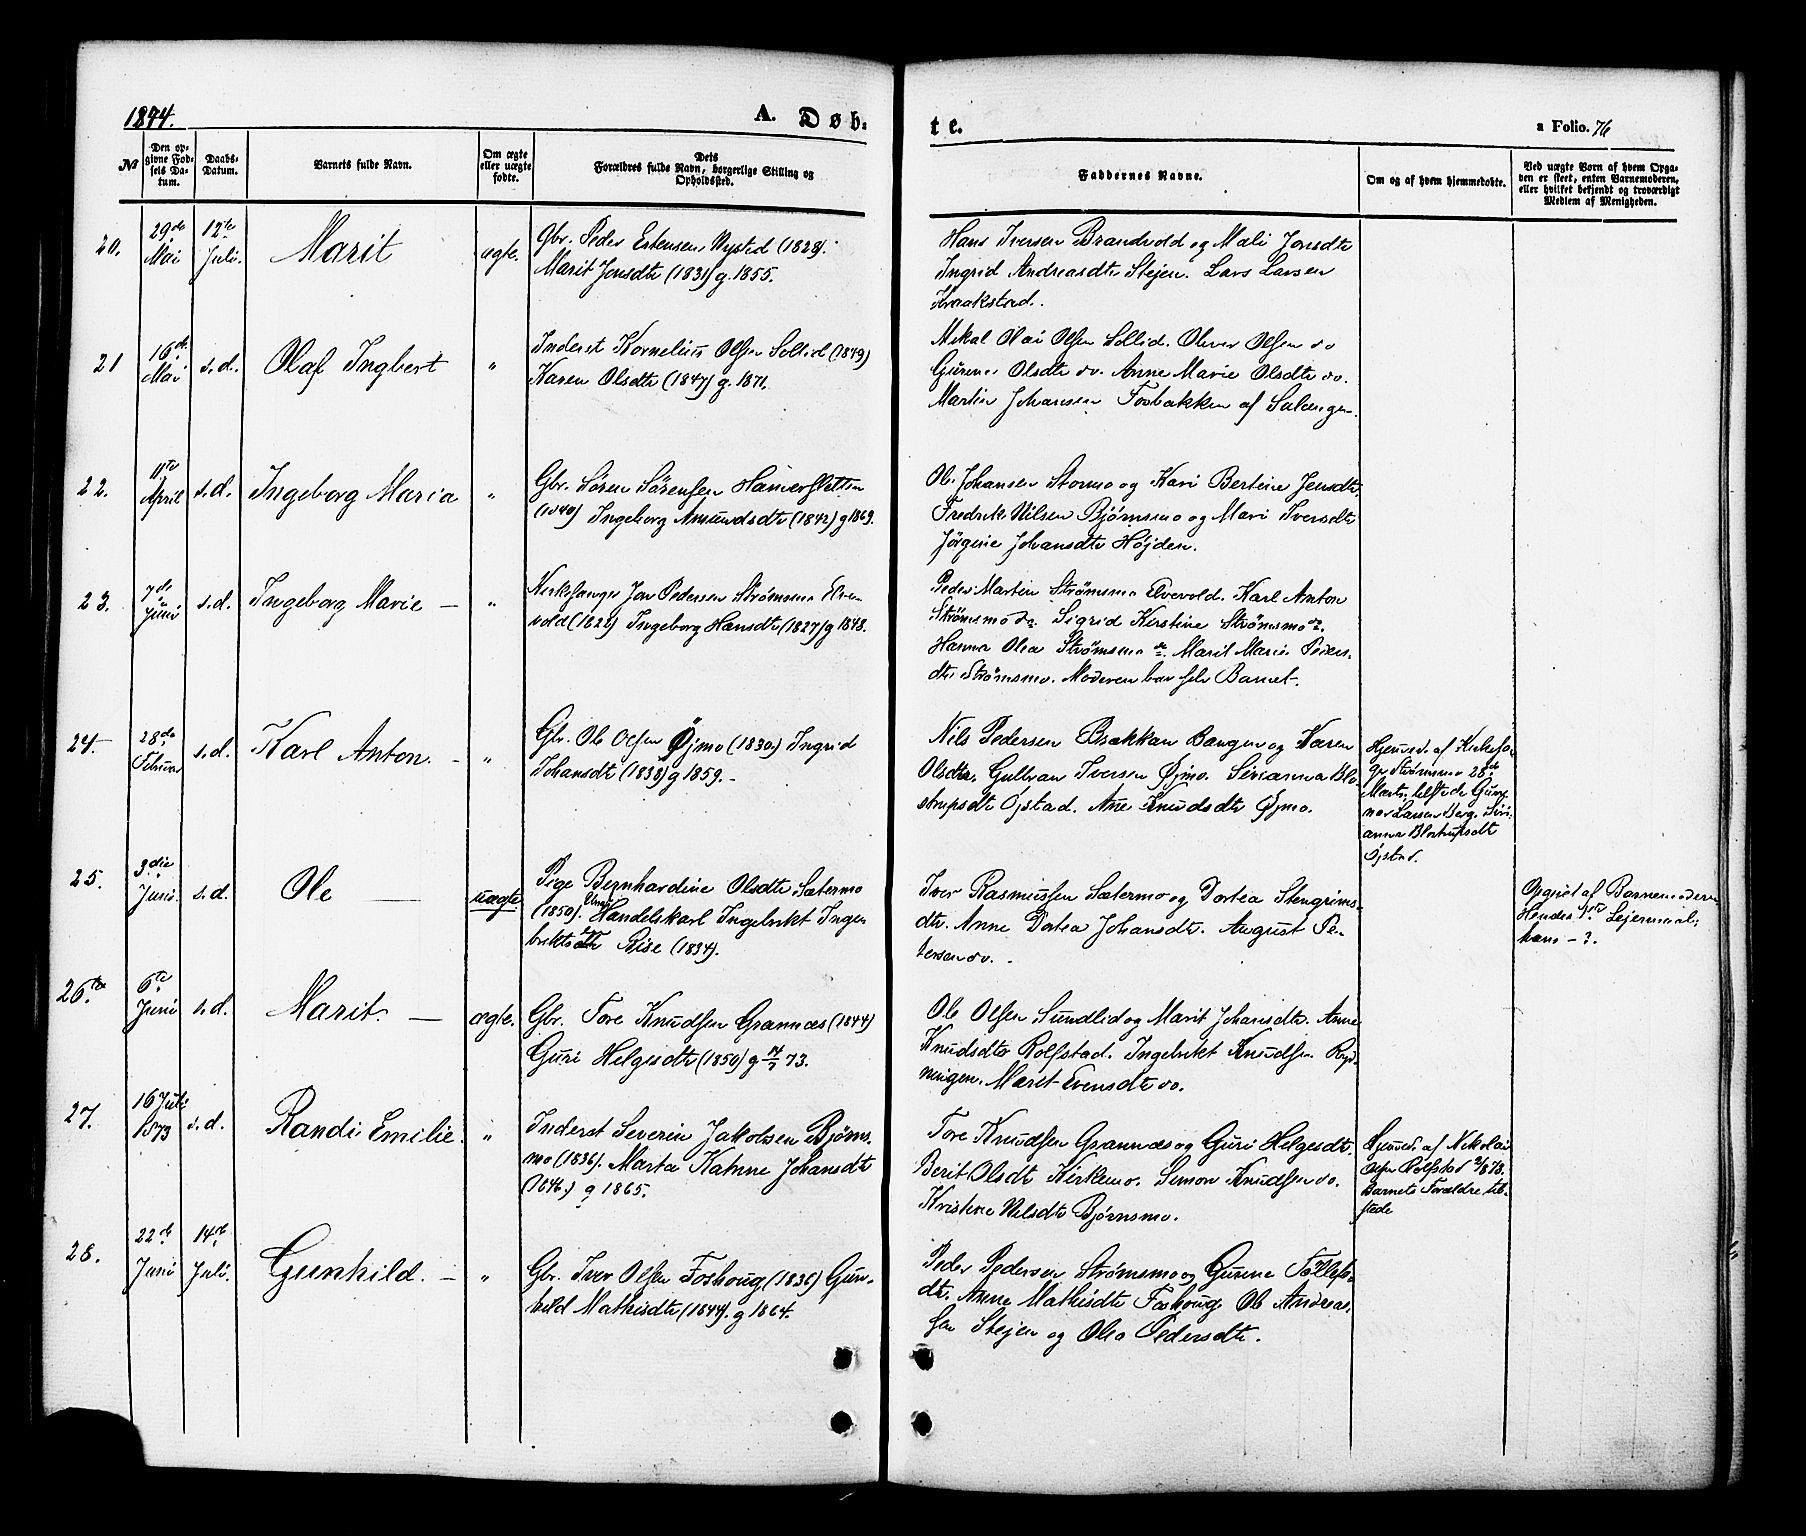 1874.
A. Døb-
te.
a Folio. 76
No
Den opgivne Fødsels Datum.
Daabs-Datum.
Barnets fulde Navn.
Om ægte eller uægte født.
Dets Forældres fulde Navn, borgerlige Stilling og Opholdssted.
Faddernes Navne.
Om og af hvem hjemmedøbt.
Ved uægte Børn af hvem Opgaven er skeet, enten Barnemoderen, eller hvilket bekjendt og troværdigt Medlem af Menigheden.
20.
29de Mai
12te Juli.
Marit
ægte.
Gbr. Peder Estensen Nysted (1828).
Marit Jonsdtr (1831) g. 1855.
Hans Iversen Brandvold og Mali Jonsdtr
Ingrid Andreasdtr Stejen. Lars Larsen
Kraakstad.
21
16de Mai
s.d.
Olaf Ingbert
"
Inderst Kornelius Olsen Sollid (1849)
Karen Olsdtr (1847) g. 1871.
Mekal Olai Olsen Sollid. Oliver Olsen do
Gurine Olsdtr do. Anne Marie Olsdtr do.
Martin Johansen Fosbakken af Salangen.
22.
11te April
s.d.
Ingeborg Maria
"
Gbr. Sören Sörensen Hamersletten
(1840) Ingeborg Amundsdtr (1842) g 1869.
Ole Johansen Stormo og Kari Bertine Jensdtr.
Fredrik Nilsen Bjørnsmo og Mari Iversdtr
Jørgine Johansdtr Højden.
23.
7de Juni
s.d.
Ingeborg Marie —
"
Kirkesanger Jon Pedersen Strømsmo Elve-
vold (1821) Ingeborg Hansdtr (1827) g 1848.
Peder Martin Strømsmo Elvevold. Karl Anton
Strømsmo do. Sigrid Kirstine Strømsmo do.
Hanna Olea Strømsmo do. Marit Marie Peders-
dtr Strømsmo. Moderen bar selv Barnet.
24.
28de Februar
s.d.
Karl Anton. —
"
Gbr. Ole Olsen Øjmo (1830.) Ingrid
Johansdt (1838) g 1859. —
Nils Pedersen Bakken Bangen og Karen
Olsdtr. Gulbran Iversen Øjmo. Sirianna Blo-
strupsdt Øjstad. Ane Knudsdtr Øjmo.
Hjemmed. af Kirkesan-
ger Strømsmo 28de
Marts. tilstede Gun-
nor Larsen Berg. Siri-
anna Blostrupsdt
Øjstad.
25.
3die Juni.
s.d.
Ole —
uægte
Pige Bernhardine Olsdtr Sætermo
(1850). Handelskarl Ingebrikt Inge-
brikts Rise (1834).
Iver Rasmussen Sætermo og Dortea Stengrims-
dtr. Anne Dortea Johansdtr. August Pe-
tersen do. -
Opgivet af Barnemoderen
Hendes 1ste Lejermaal;
hans - ?.
26.
6te Juni
s.d.
Marit. —
ægte.
Gbr. Tore Knudsen Grannæs (1844)
Guri Helgesdtr (1850) g 73.
Ole Olsen Sundlid og Marit Johansdtr. Anne
Knudsdtr Rolfstad. Ingebrikt Knudsen Ryd-
ningen. Marit Evensdtr do.
27.
16 Juli 1873
s.d.
Randi Emilie.
"
Inderst Severin Jakobsen Bjørns-
mo (1836). Marta Katrine Johansdt
(1846.) g 1865.
Tore Knudsen Grannæs og Guri Helgesdt.
Berit Olsdt Kirkemo. Simon Knudsen do.
Kristine Nilsdtr Bjørnsmo.
Hjemmed. af Nikolai
Olsen Rolfstad
Barnets Forældre til-
stede
28.
22de Juni
14de Juli.
Gunhild. —
"
Gbr. Iver Olsen Foshoug (1836) Gun-
hild Mathisdtr (1844). g 1864.
Peder Pedersen Strømsmo og Gurine Tollefs-
dtr. Anne Mathisdtr Foshoug. Ole Andreas-
sen Stejen og Olea Pedersdtr.